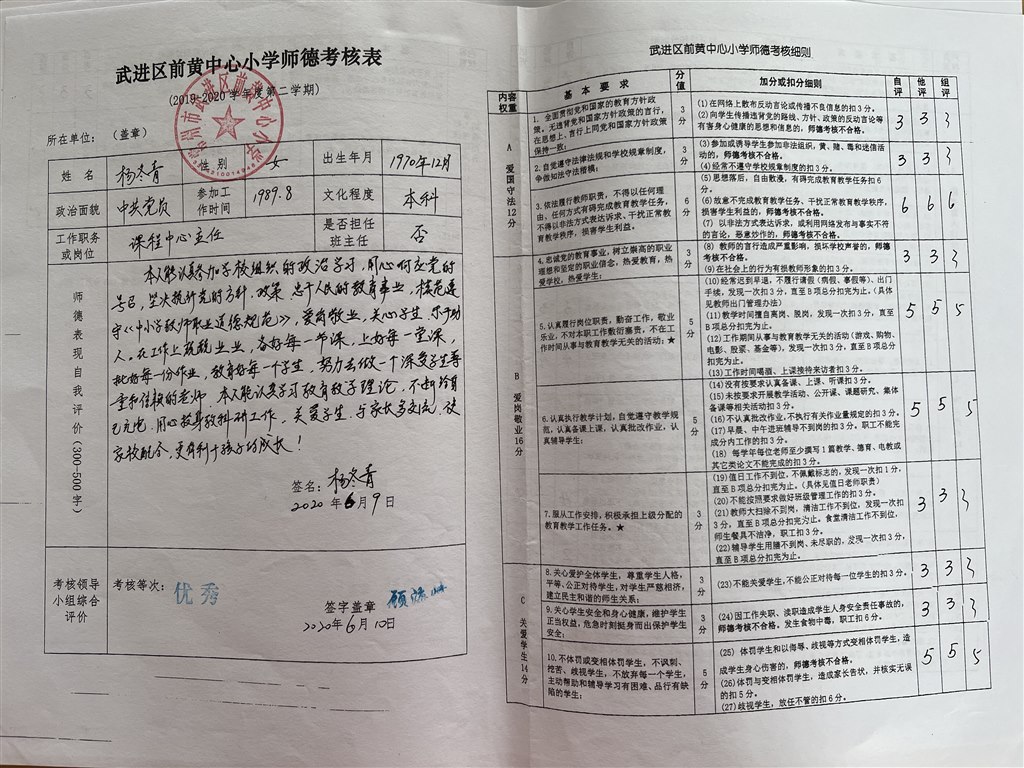 武进区前黄中心小学师德考核表
(2019-2020学年度第二学期)
所在单位: (盖章)
姓 名 杨冬青 性 别 女 出生年月 1970年12月
政治面貌 中共党员 参加工作时间 1989.8 文化程度 本科
工作职务或岗位 课程中心主任 是否担任班主任 否
师德表现自我评价(300-500字)
本人能认真参加学校组织的政治学习,用心响应党的
号召,坚决执行党的方针、政策,忠于人民的教育事业,模范遵
守《中小学教师职业道德规范》,爱岗敬业,关心学生,乐于助
人。在工作上兢兢业业,备好每一节课,上好每一堂课,
批好每一份作业,教育好每一个学生,努力去做一个深受学生尊
重和信赖的老师。本人能认真学习教育教学理论,不断给自
己充电,用心投身教科研工作。关爱学生,与家长多交流,使
家校配合,更有利于孩子的成长!
签名:杨冬青
2020年6月9日
考核领导小组综合评价
考核等次:优秀
签字盖章
2020年6月10日
武进区前黄中心小学师德考核细则
内容权重 基 本 要 求 分值 加分或扣分细则 自评 他评 组评
A 爱国守法12分
1. 全面贯彻党和国家的教育方针政策。无违背党和国家方针政策的言行,在思想上、言行上同党和国家方针政策保持一致; 3分
(1)在网络上散布反动言论或传播不良信息的扣3分。
(2)向学生传播违背党的路线、方针、政策的反动言论等有害身心健康的思想和信息的,师德考核不合格。
3 3 3
2.自觉遵守法律法规和学校规章制度,争做知法守法楷模; 3分
(3)参加或诱导学生参加非法组织,黄、赌、毒和迷信活动的,师德考核不合格。
(4)经常不遵守学校规章制度的扣3分。
3 3 3
3.依法履行教师职责,不得以任何理由、任何方式有碍完成教育教学任务,不得以非法方式表达诉求、干扰正常教育教学秩序,损害学生利益。 6分
(5)思想落后,自由散漫,有碍完成教育教学任务扣6分。
(6)故意不完成教育教学任务、干扰正常教育教学秩序,损害学生利益的,师德考核不合格。
(7)以非法方式表达诉求,或利用网络发布与事实不符的言论,恶意炒作的,师德考核不合格。
6 6 6
B 爱岗敬业16分
4.忠诚党的教育事业,树立崇高的职业理想和坚定的职业信念,热爱教育,热爱学校,热爱学生; 3分
(8)教师的言行造成严重影响,损坏学校声誉的,师德考核不合格。
(9)在社会上的行为有损教师形象的扣3分。
3 3 3
5.认真履行岗位职责,勤奋工作,敬业乐业,不对本职工作敷衍塞责,不在工作时间从事与教育教学无关的活动;★ 5分
(10)经常迟到早退,不履行请假(病假、事假等)、出门手续,发现一次扣3分,直至B项总分扣完为止。(具体见教师出门管理办法)
(11)教学时间擅自离岗、脱岗,发现一次扣3分,直至B项总分扣完为止。
(12)工作期间从事与教育教学无关的活动(游戏、购物、电影、股票、基金等),发现一次扣3分,直至B项总分扣完为止。
(13)工作时间喝酒、上课接待来访者扣3分。
5 5 5
6.认真执行教学计划,自觉遵守教学规范,认真备课上课,认真批改作业,认真辅导学生; 5分
(14)没有按要求认真备课、上课、听课扣3分。
(15)未按要求开展教学活动、公开课、课题研究、集体备课等相关活动扣3分。
(16)不认真批改作业,不执行有关作业量规定的扣3分。
(17)早晨、中午进班辅导不到岗的扣3分。职工不能完成分内工作的扣3分。
(18) 每学年每位老师至少撰写1篇教学、德育、电教或其它类论文不能完成的扣3分。
5 5 5
7.服从工作安排,积极承担上级分配的教育教学工作任务。★ 3分
(19)值日工作不到位,不佩戴标志的,发现一次扣1分,直至B项总分扣完为止。(具体见值日老师职责)
(20)不能按照要求做好班级管理工作的扣3分。
(21)教师大扫除不到岗,清洁工作不到位,发现一次扣3分,直至B项总分扣完为止。食堂清洁工作不到位,师生餐具不洁净,职工扣3分。
(22)辅导学生用膳不到岗、未尽职的,发现一次扣3分,直至B项总分扣完为止。
3 3 3
C 关爱学生14分
8.关心爱护全体学生,尊重学生人格,平等、公正对待学生,对学生严慈相济,建立民主和谐的师生关系; 3分
(23)不能关爱学生,不能公正对待每一位学生的扣3分。
3 3 3
9.关心学生安全和身心健康,维护学生正当权益,危急时刻挺身而出保护学生安全; 3分
(24)因工作失职、渎职造成学生人身安全责任事故的,师德考核不合格。发生食物中毒,职工扣6分。
3 3 3
10.不体罚或变相体罚学生,不讽刺、挖苦、歧视学生,不放弃每一个学生,主动帮助和辅导学习有困难、品行有缺陷的学生; 5分
(25) 体罚学生和以侮辱、歧视等方式变相体罚学生,造成学生身心伤害的,师德考核不合格。
(26)体罚与变相体罚学生,造成家长告状,并核实无误的扣5分。
(27)歧视学生,放任不管的扣6分。
5 5 5